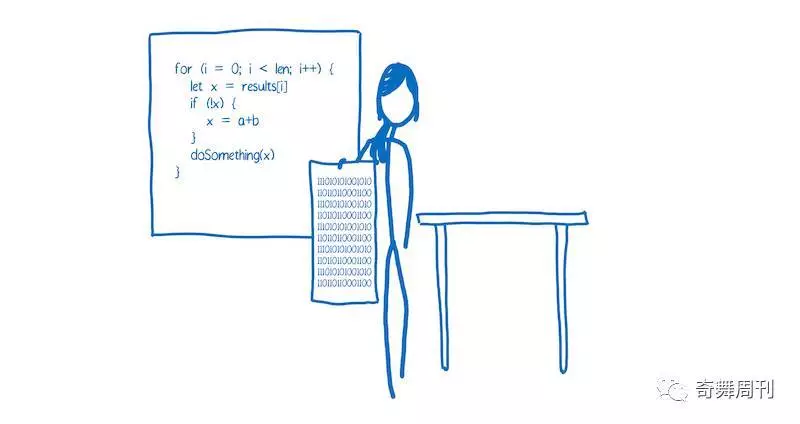 for (i = 0; i < len; i++) {
let x = results[i]
if (!x) {
x = a+b
}
doSomething(x)
}
11101010100101​0
11011011000110​0
11101010100101​0
11011011000110​0
11101010100101​0
11011011000110​0
11101010100101​0
11011011000110​0
11101010100101​0
11011011000110​0
奇舞周刊